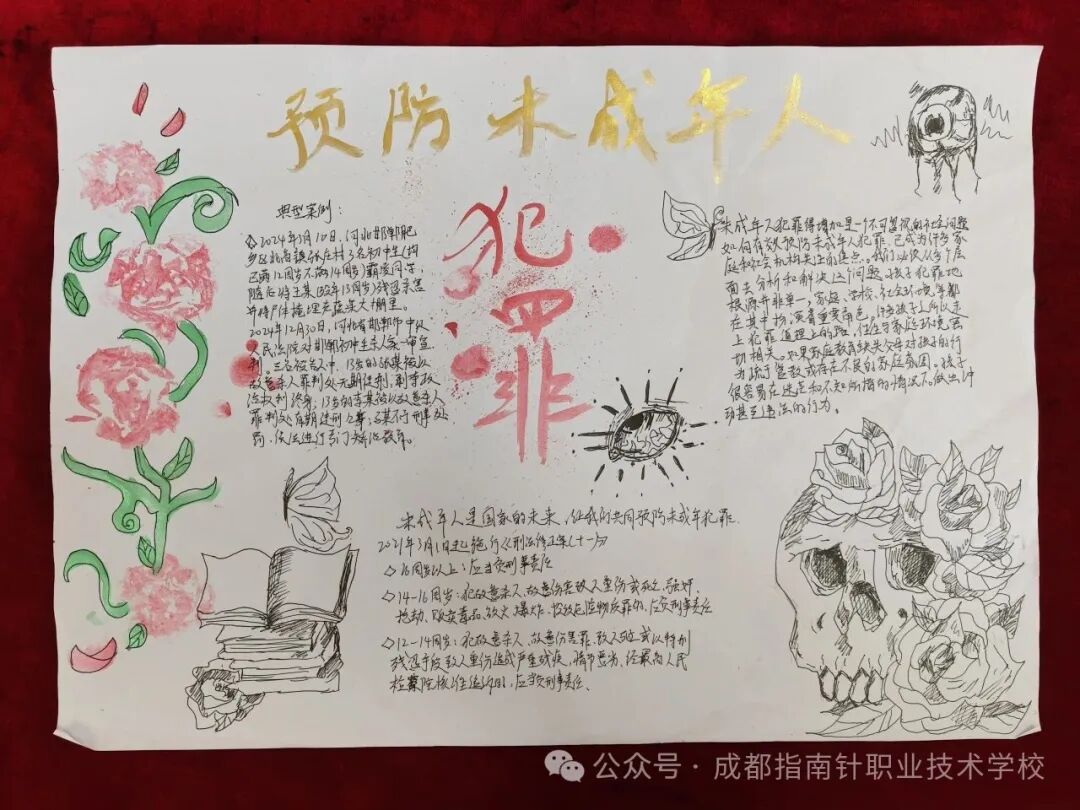 预防未成年人
犯罪
典型案例：
◇2024年3月10日，河北邯郸肥
乡区北高镇张庄村3名初中生(均
已满12周岁不满14周岁)霸凌同学，
随后将王某(殁年13周岁)残忍杀害
并将尸体掩埋于蔬菜大棚里。
2024年12月30日，河北省邯郸市中级
人民法院对邯郸初中生杀人案一审宣
判，三名被告人中，13岁的张某被以
故意杀人罪判处无期徒刑，剥夺政
治权利终身，13岁的李某被以故意杀人
罪判处有期徒刑12年，马某不予刑事处
罚，依法进行专门矫治教育。
未成年人犯罪得增加是一个不可忽视的社会问题
如何有效预防未成年人犯罪，已成为许多家
庭和社会机构关注的焦点。我们必须从多个层
面去分析和解决这个问题。孩子犯罪地
根源并非单一，家庭、学校、社会环境等都
在其中扮演着重要角色。许多孩子之所以走
上犯罪道理上的路，往往与家庭环境密
切相关。如果家庭教育缺失父母对孩子的行
为疏于管教或存在不良的家庭氛围。孩子
很容易在迷茫和不知所措的情况下，做出冲
动甚至违法的行为。
未成年人是国家的未来，让我们共同预防未成年犯罪。
2021年3月1日起施行《刑法修正案(十一)》
◇16周岁以上：应当负刑事责任
◇14-16周岁：犯故意杀人、故意伤害致人重伤或死亡、强奸、
抢劫、贩卖毒品、放火、爆炸、投放危险物质罪的，应负刑事责任
◇12-14周岁：犯故意杀人、故意伤害罪，致人死亡或以特别
残忍手段致人重伤造成严重残疾，情节恶劣，经最高人民
检察院核准追诉的，应当负刑事责任、
公众号·成都指南针职业技术学校